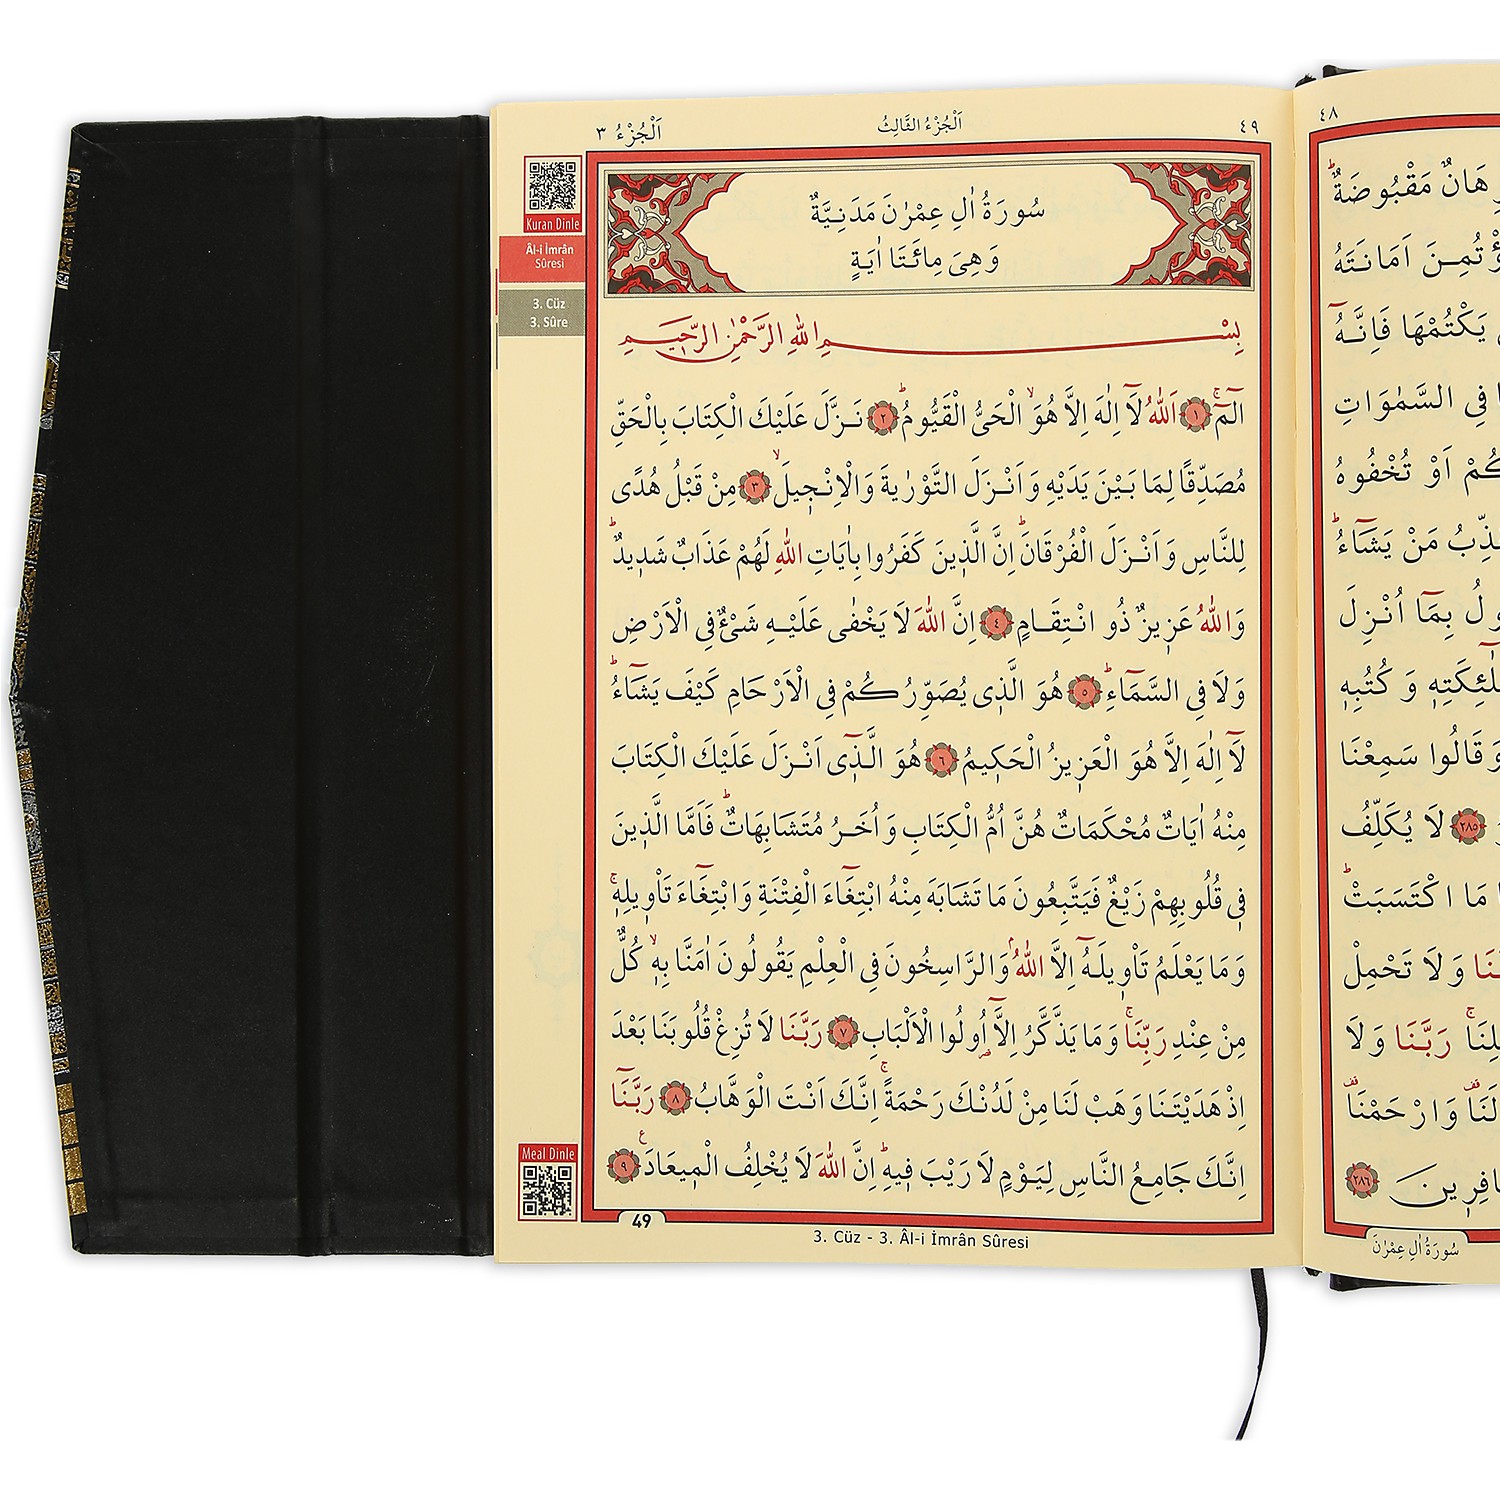 اَلْجُزْءُ ٣
اَلْجُزْءُ الثَّالِثُ
٤٩
Kuran Dinle
Âl-i İmrân
Sûresi
3. Cüz
3. Sûre
سُورَةُ اٰلِ عِمْرٰنَ مَدَنِيَّةٌ
وَهِىَ مِائَتَا اٰيَةٍ
بِسْمِ اللّٰهِ الرَّحْمٰنِ الرَّحٖيمِ
الٓمٓۚ ١ اَللّٰهُ لَٓا اِلٰهَ اِلَّا هُوَۙ الْحَىُّ الْقَيُّومُؕ ٢ نَزَّلَ عَلَيْكَ الْكِتَابَ بِالْحَقِّ
مُصَدِّقًا لِمَا بَيْنَ يَدَيْهِ وَاَنْزَلَ التَّوْرٰيةَ وَالْاِنْجٖيلَۙ ٣ مِنْ قَبْلُ هُدًى
لِلنَّاسِ وَاَنْزَلَ الْفُرْقَانَؕ اِنَّ الَّذٖينَ كَفَرُوا بِاٰيَاتِ اللّٰهِ لَهُمْ عَذَابٌ شَدٖيدٌؕ
وَاللّٰهُ عَزٖيزٌ ذُو انْتِقَامٍ ٤ اِنَّ اللّٰهَ لَا يَخْفٰى عَلَيْهِ شَىْءٌ فِى الْاَرْضِ
وَلَا فِى السَّمَٓاءِؕ ٥ هُوَ الَّذٖى يُصَوِّرُكُمْ فِى الْاَرْحَامِ كَيْفَ يَشَٓاءُؕ
لَٓا اِلٰهَ اِلَّا هُوَ الْعَزٖيزُ الْحَكٖيمُ ٦ هُوَ الَّذٖٓى اَنْزَلَ عَلَيْكَ الْكِتَابَ
مِنْهُ اٰيَاتٌ مُحْكَمَاتٌ هُنَّ اُمُّ الْكِتَابِ وَاُخَرُ مُتَشَابِهَاتٌؕ فَاَمَّا الَّذٖينَ
فٖى قُلُوبِهِمْ زَيْغٌ فَيَتَّبِعُونَ مَا تَشَابَهَ مِنْهُ ابْتِغَٓاءَ الْفِتْنَةِ وَابْتِغَٓاءَ تَاْوٖيلِهٖۚ
وَمَا يَعْلَمُ تَاْوٖيلَهُٓ اِلَّا اللّٰهُۘ وَالرَّاسِخُونَ فِى الْعِلْمِ يَقُولُونَ اٰمَنَّا بِهٖۙ كُلٌّ
مِنْ عِنْدِ رَبِّنَاۚ وَمَا يَذَّكَّرُ اِلَّٓا اُولُوا الْاَلْبَابِ ٧ رَبَّنَا لَا تُزِغْ قُلُوبَنَا بَعْدَ
اِذْ هَدَيْتَنَا وَهَبْ لَنَا مِنْ لَدُنْكَ رَحْمَةًۚ اِنَّكَ اَنْتَ الْوَهَّابُ ٨ رَبَّنَٓا
اِنَّكَ جَامِعُ النَّاسِ لِيَوْمٍ لَا رَيْبَ فٖيهِؕ اِنَّ اللّٰهَ لَا يُخْلِفُ الْمٖيعَادَ ٩
Meal Dinle
49
3. Cüz - 3. Âl-i İmrân Sûresi
٤٨
مَقْبُوضَةٌؕ
اَمَانَتَهُ
يَكْتُمْهَا فَاِنَّهُٓ
فِى السَّمٰوَاتِ
اَوْ تُخْفُوهُ
مَنْ يَشَٓاءُؕ
بِمَٓا اُنْزِلَ
وَكُتُبِهٖ
وَقَالُوا سَمِعْنَا
٢٨٥ لَا يُكَلِّفُ
مَا اكْتَسَبَتْؕ
وَلَا تَحْمِلْ
رَبَّنَا وَلَا
وَارْحَمْنَا
٢٨٦
سُورَةُ اٰلِ عِمْرٰنَ